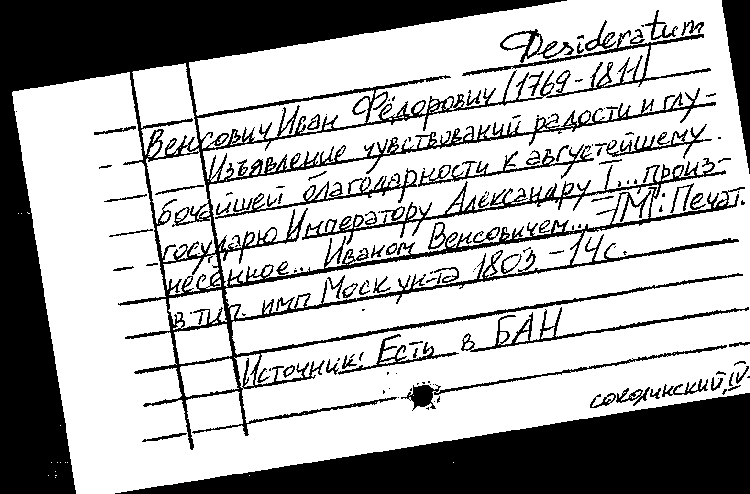 Desideratum
Венсович, Иван Фёдорович (1769-1811)
Изъявление чувствований радости и глу-
бочайшей благодарности к августейшему
государю Императору Александру I... произ-
несенное... Иваном Венсовичем... =|М|: Печат.
в тип. имп Моск ун-та, 1803. -14 с.
Источник: Есть в БАН
соколинский, IV